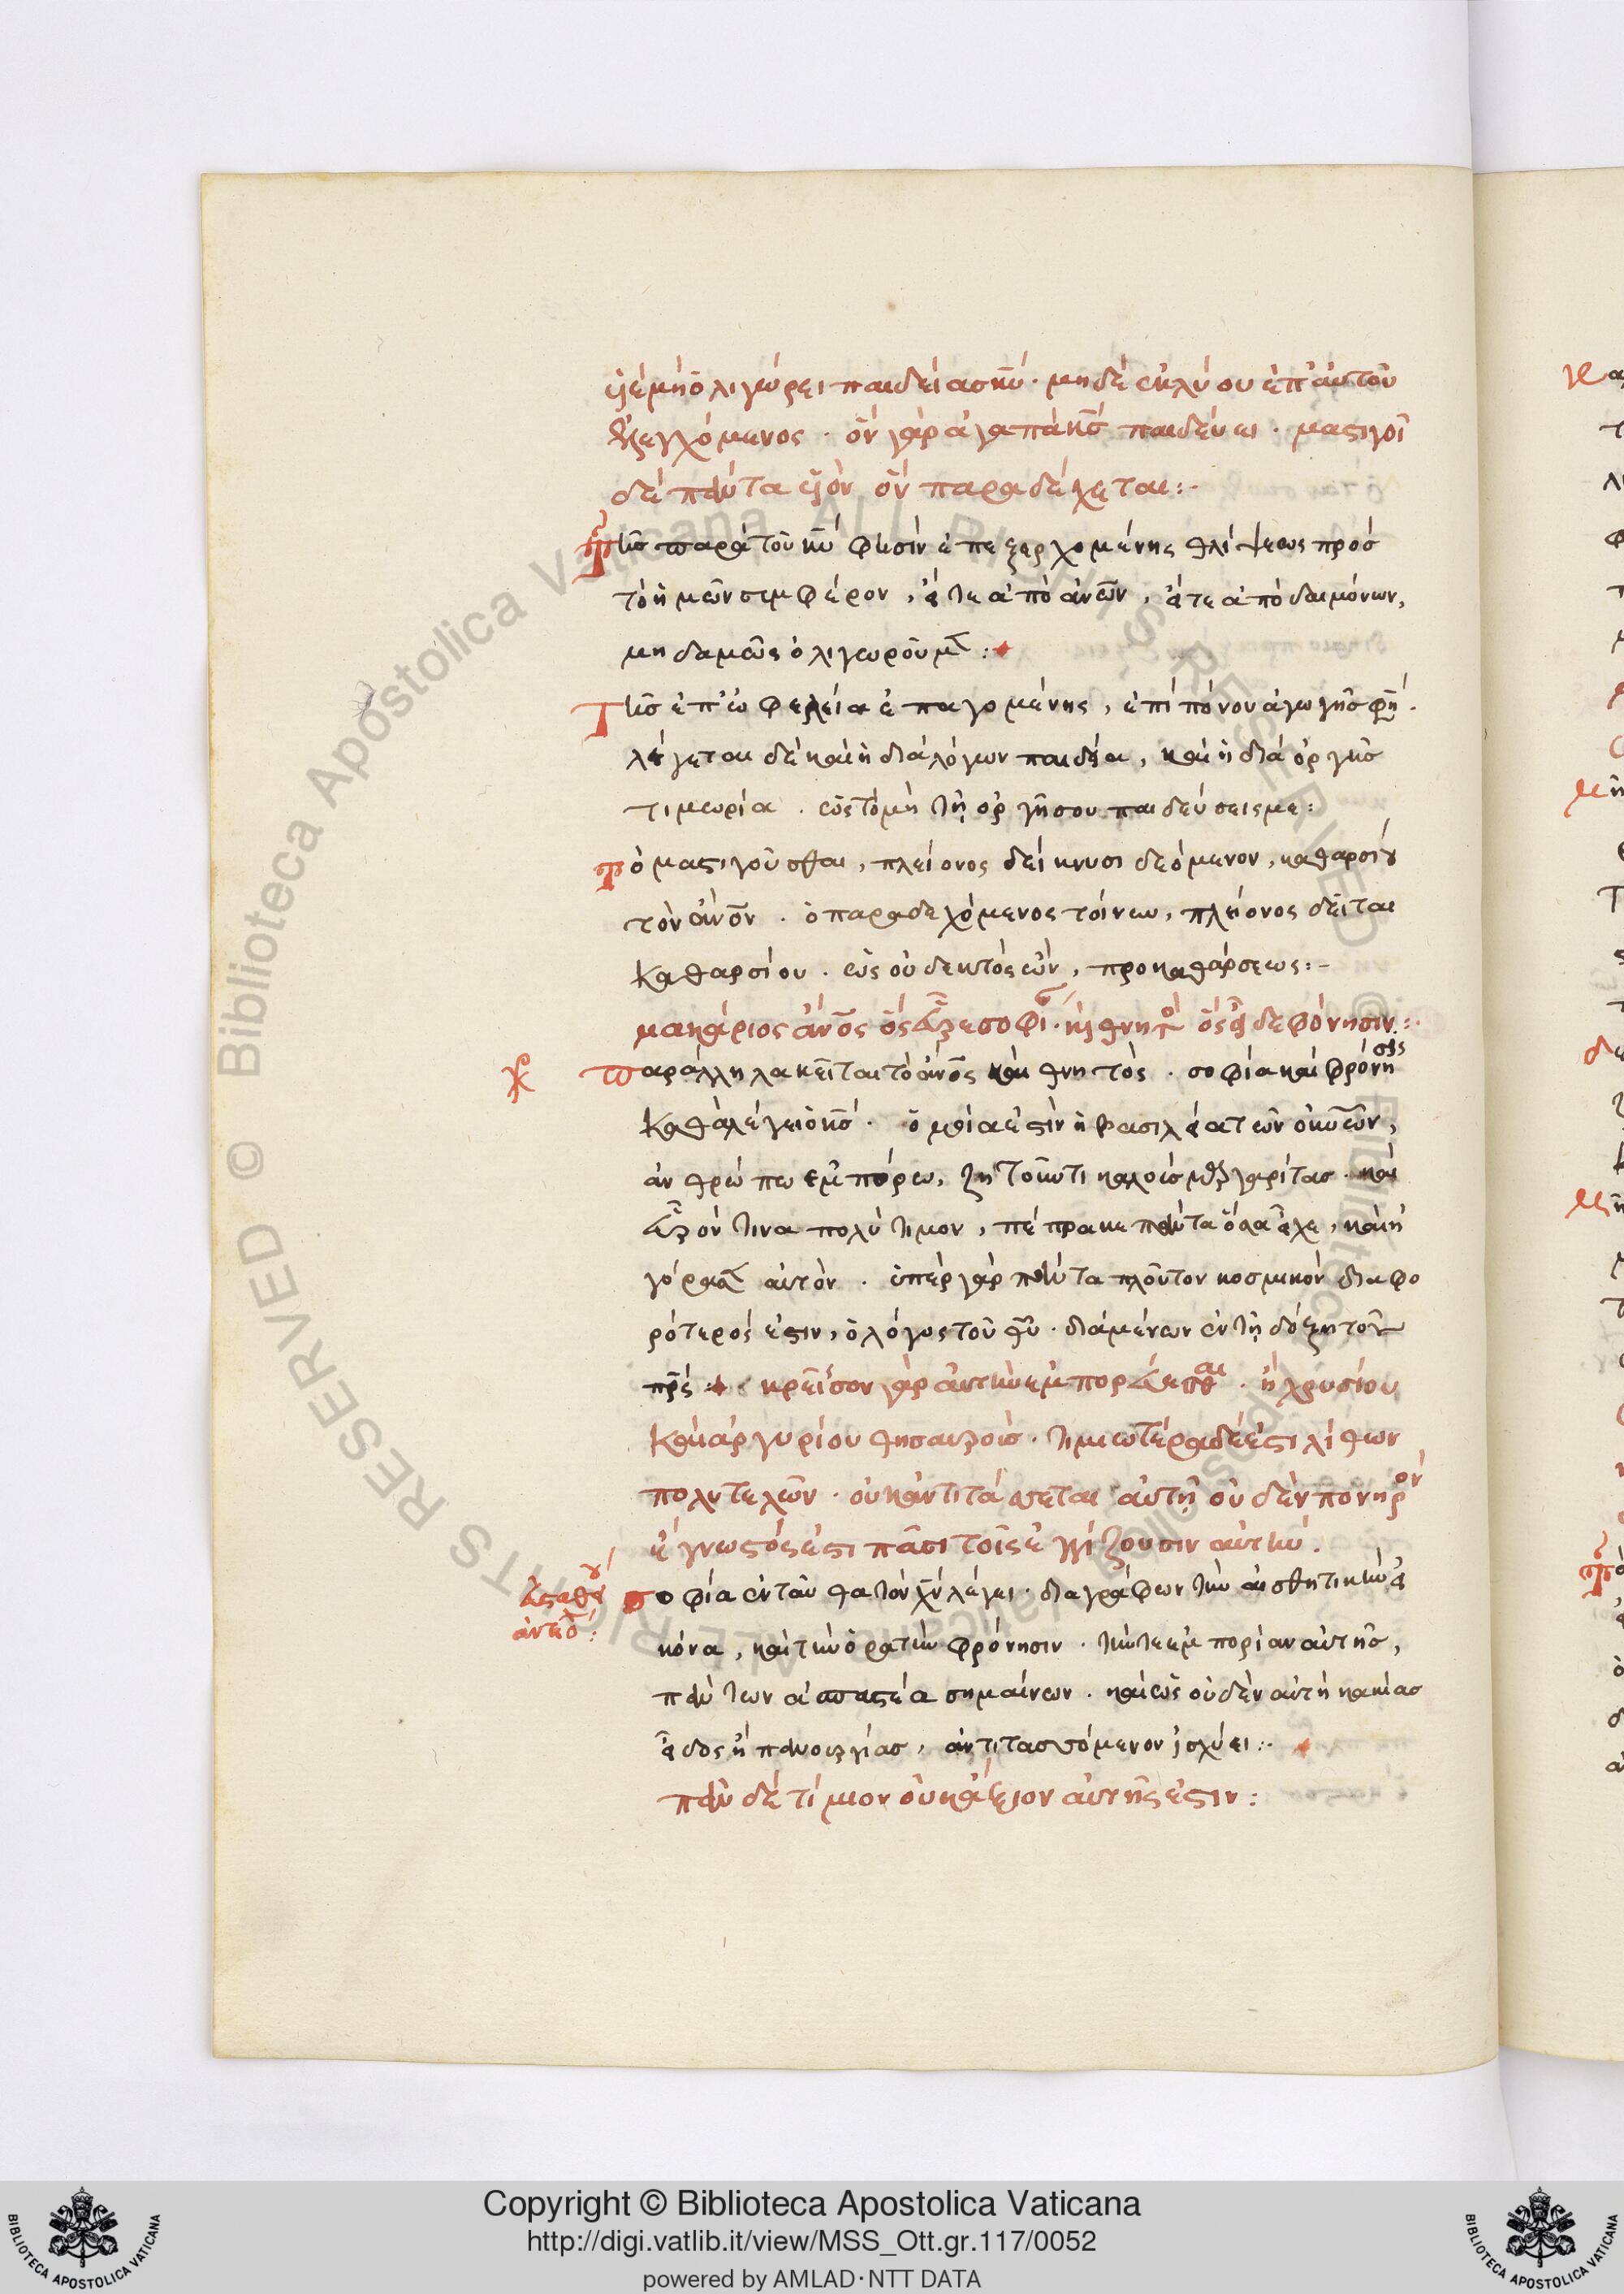 υἱέ μὴ ὀλιγώρει παιδείας κυ̅· μηδὲ ἐκλύου ἐπ' αὐτοῦ
ἐλεγχόμενος· ὃν γὰρ ἀγαπᾷ κς̅ παιδεύει· μαστιγοῖ
δὲ πάντα υἱὸν ὃν παραδέχεται:-
Τῆς παρὰ τοῦ κυ̅ φησὶν ἐπεξερχομένης θλίψεως πρὸς
τὸ ἡμῶν συμφέρον, εἴτε ἀπὸ ἀν̅ων, εἴτε ἀπὸ δαιμόνων,
μηδαμῶς ὀλιγωροῦμ:
Τῆς ἐπ' ὠφελεία ἐπαγομένης, ἐπίπονον ἀγωγῆς φη.
λέγεται δὲ καὶ ἡ διὰ λόγων παιδεία, καὶ ἡ διὰ ὀργῆς
τιμωρία. ὡς τὸ μὴ τῇ ὀργῇ σου παιδεύσεις με:
Τὸ μαστιγοῦσθαι, πλείονος δείκνυσι δεόμενον, καθαρσίου
τὸν ἀν̅ον. ὁ παραδεχόμενος τοίνυν, πλείονος δεῖται
καθαρσίου. ὡς οὐ δεκτὸς ὢν, προ καθάρσεως:-
μακάριος ἀν̅ος ὃς εὗρε σοφί· κ θνητ ὃς εἶδε φρόνησιν:
Παράλληλα κεῖται τὸ ἀν̅ος καὶ θνητός. σοφία καὶ φρόνησις
καθὰ λέγει ὁ κς̅. ὁμοία ἐστὶν ἡ βασιλεία τῶν οὐν̅ων,
ἀνθρώπω ἐμπόρω, ζητοῦντι καλοὺς μαργαρίτας. καὶ
εὑρόν τινα πολύτιμον, πέπρακε πάντα ὅσα εἶχε, καὶ ἠ
γόρασε αὐτόν. ὑπὲρ γὰρ πάντα πλοῦτον κοσμικὸν διαφο
ρότερός ἐστιν, ὁ λόγος τοῦ θυ̅. διαμένων ἐν τῇ δόξη τοῦ
πρς̅: κρεῖσσον γὰρ αὐτὴν ἐμπορεύεσθαι. ἢ χρυσίου
καὶ ἀργυρίου θησαυροὺς. τιμιωτέρα δέ ἐστι λίθων
πολυτελῶν. οὐκ ἀντιτάσσεται αὐτῇ οὐδὲν πονηρόν
εὔγνωστός ἐστι πᾶσι τοῖς ἐγγίζουσιν αὐτήν.
Σοφία ἐνταῦθα τὸν χν̅ λέγει. διαγράφων τὴν αἰσθητικὴν εἰ
κόνα, καὶ τὴν ὁρατὴν φρόνησιν. τήν τε ἐμπορίαν αὐτῆς,
πάντων σημαίνων. καὶ ὡς οὐδὲν αὐτῇ κακίας
εἶδος ἢ πανουργίας, ἀντιτασσόμενον ἰσχύει:
πᾶν δὲ τίμιον οὐκ ἄξιον αὐτῆς ἐστιν:
Copyright © Biblioteca Apostolica Vaticana
http://digi.vatlib.it/view/MSS_Ott.gr.117/0052
powered by AMLAD·NTT DATA